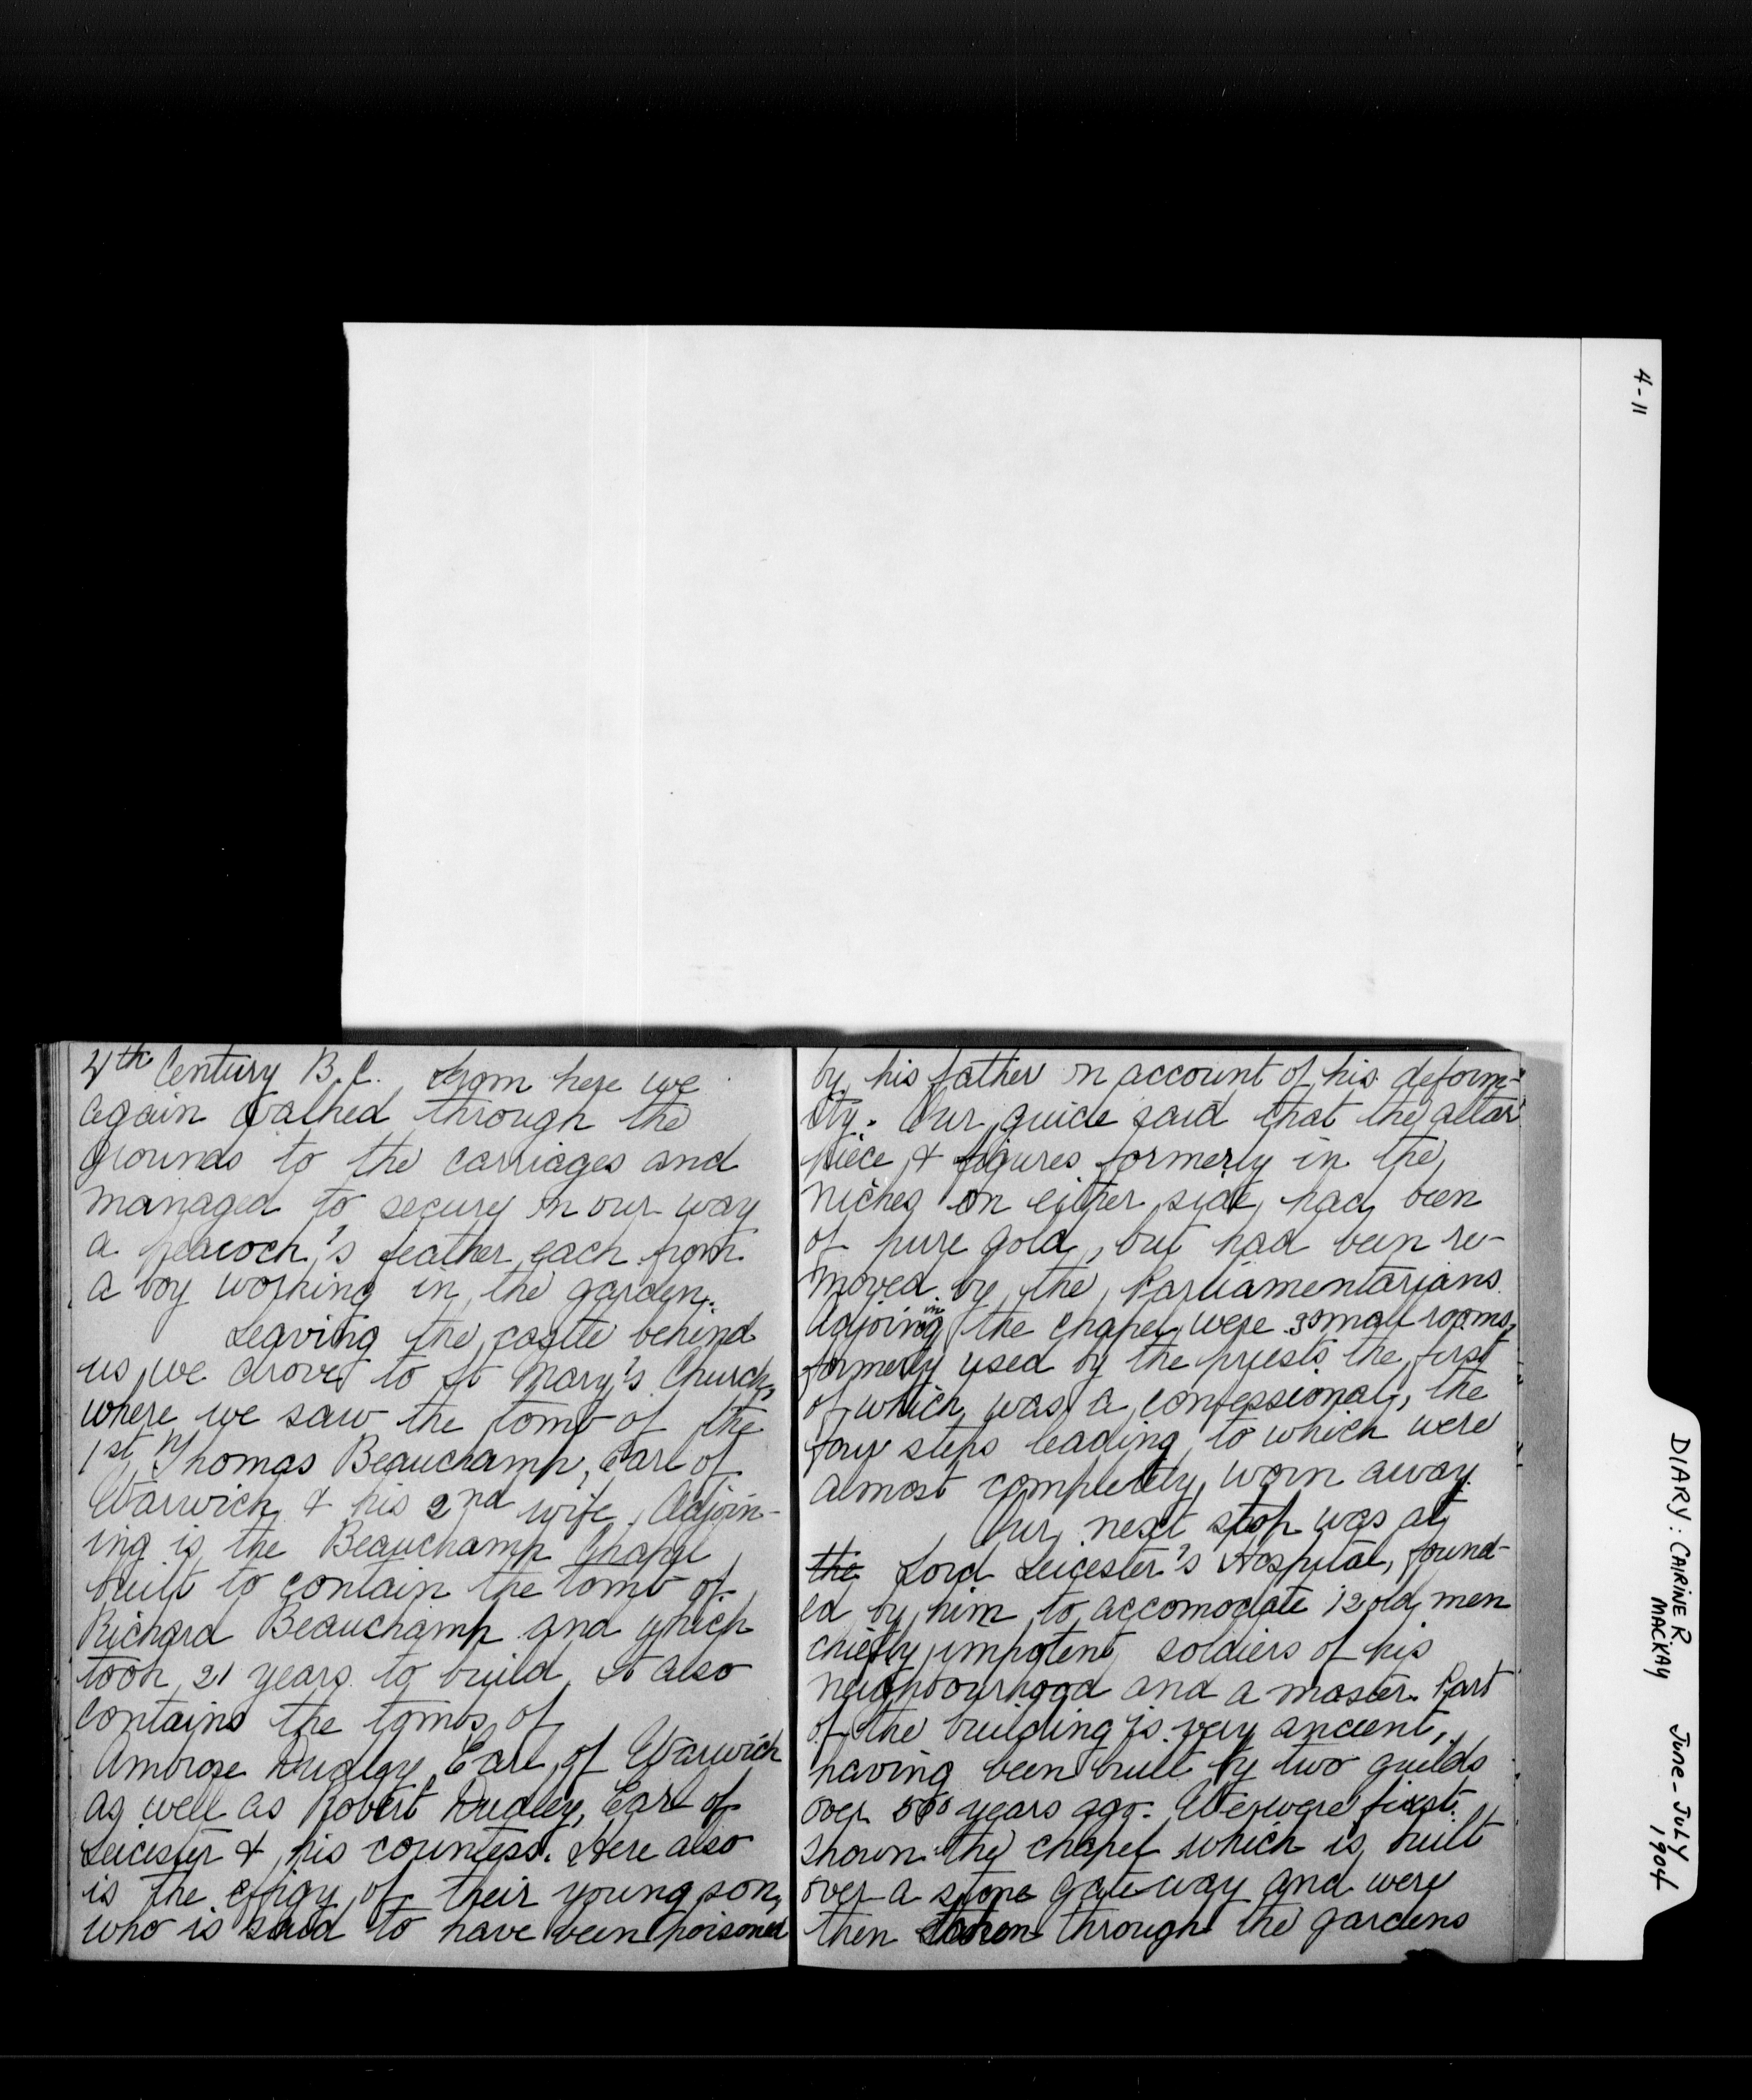 4th Century B.C. From here we
again walked through the
grounds to the carriages and
managed to secure on our way
a peacock's feather each from
a boy working in the garden.
Leaving the castle behind
us we drove to St Mary's Church,
where we saw the tomb of the
1st Thomas Beauchamp, Earl of
Warwick & his 2nd wife. Adjoin-
ing is the Beauchamp Chapel
built to contain the tomb of
Richard Beauchamp and which
took 21 years to build. It also
contains the tombs of
Ambrose Dudley, Earl of Warwick
as well as Robert Dudley, Earl of
Leicester & his countess. Here also
is the effigy of their young son,
who is said to have been poisoned
by his father on account of his deform-
ity. Our guide said that the altar
piece & figures formerly in the
niches on either side, had been
of pure gold, but had been re-
moved by the Parliamentarians.
Adjoining the chapel were 3 small rooms,
formerly used by the priests the first
of which was a confessional, the
four steps leading to which were
almost completely worn away.
Our next stop was at
the Lord Leicester's Hospital, found-
ed by him to accomodate 12 old men
chiefly impotent soldiers of his
neighbourhood and a master. Part
of the building is very ancient,
having been built by two guilds
over 500 years ago. We were first
shown the chapel which is built
over a stone gateway and were
then taken through the gardens
4-11
DIARY: CAIRINE R MACKAY
June - July 1904